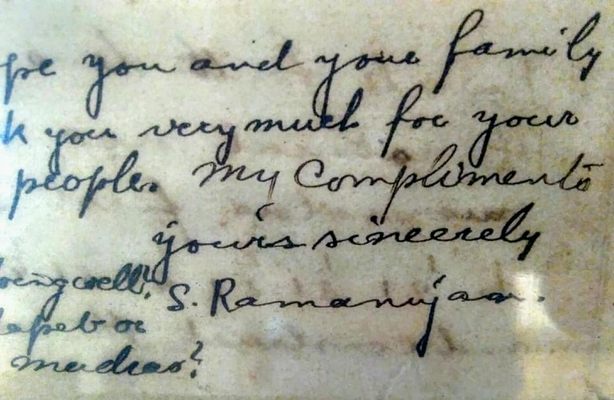 pe you and your family
k you very much for your
people. My Compliments
yours sincerely
S. Ramanujan.
oing well?
or
madras?